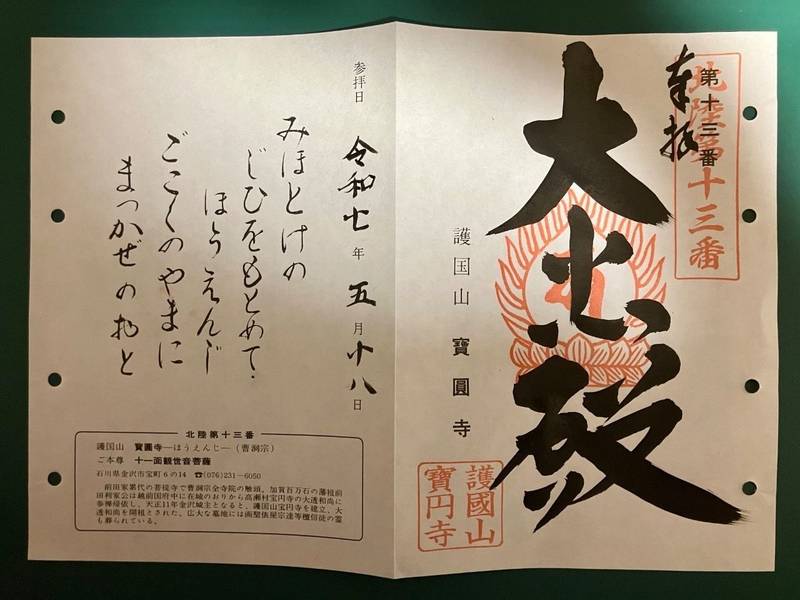 北陸第十三番
第十三番
奉拝
大悲殿
護国山 寶圓寺
護國山
寶円寺
参拝日 令和七年五月十八日
みほとけの
じひをもとめて
ほうえんじ
ごこくのやまに
まつかぜのおと
北陸第十三番
護国山 寶圓寺―ほうえんじ―(曹洞宗)
ご本尊 十一面観世音菩薩
石川県金沢市宝町6の14 ☎(076)231−6050
前田家累代の菩提寺で曹洞宗全寺院の触頭。加賀百万石の藩祖前
田利家公は越前国府中に在城のおりから高瀬村宝円寺の大透和尚に
参禅帰依し、天正11年金沢城主となると、護国山宝円寺を建立、大
透和尚を開祖とされた。広大な墓地には画聖俵屋宗達等檀信徒の霊
も葬られている。